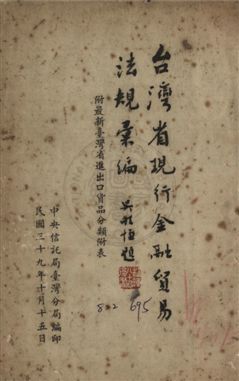 台灣省現行金融貿易
法規彙編
吳
附最新臺灣省進出口貨品分類附表
中央信託局臺灣分局編印
民國三十九年十月十五日
802 695